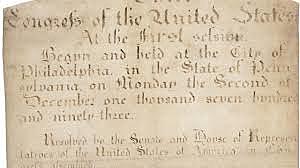 Congress of the United States
At the first session
Begun and held at the City of
Philadelphia, in the State of Penn
sylvania, on Monday the Second of
December one thousand seven hundred
and ninety three.
Resolved by the Senate and House of Represen
tatives of the United States of America in Con